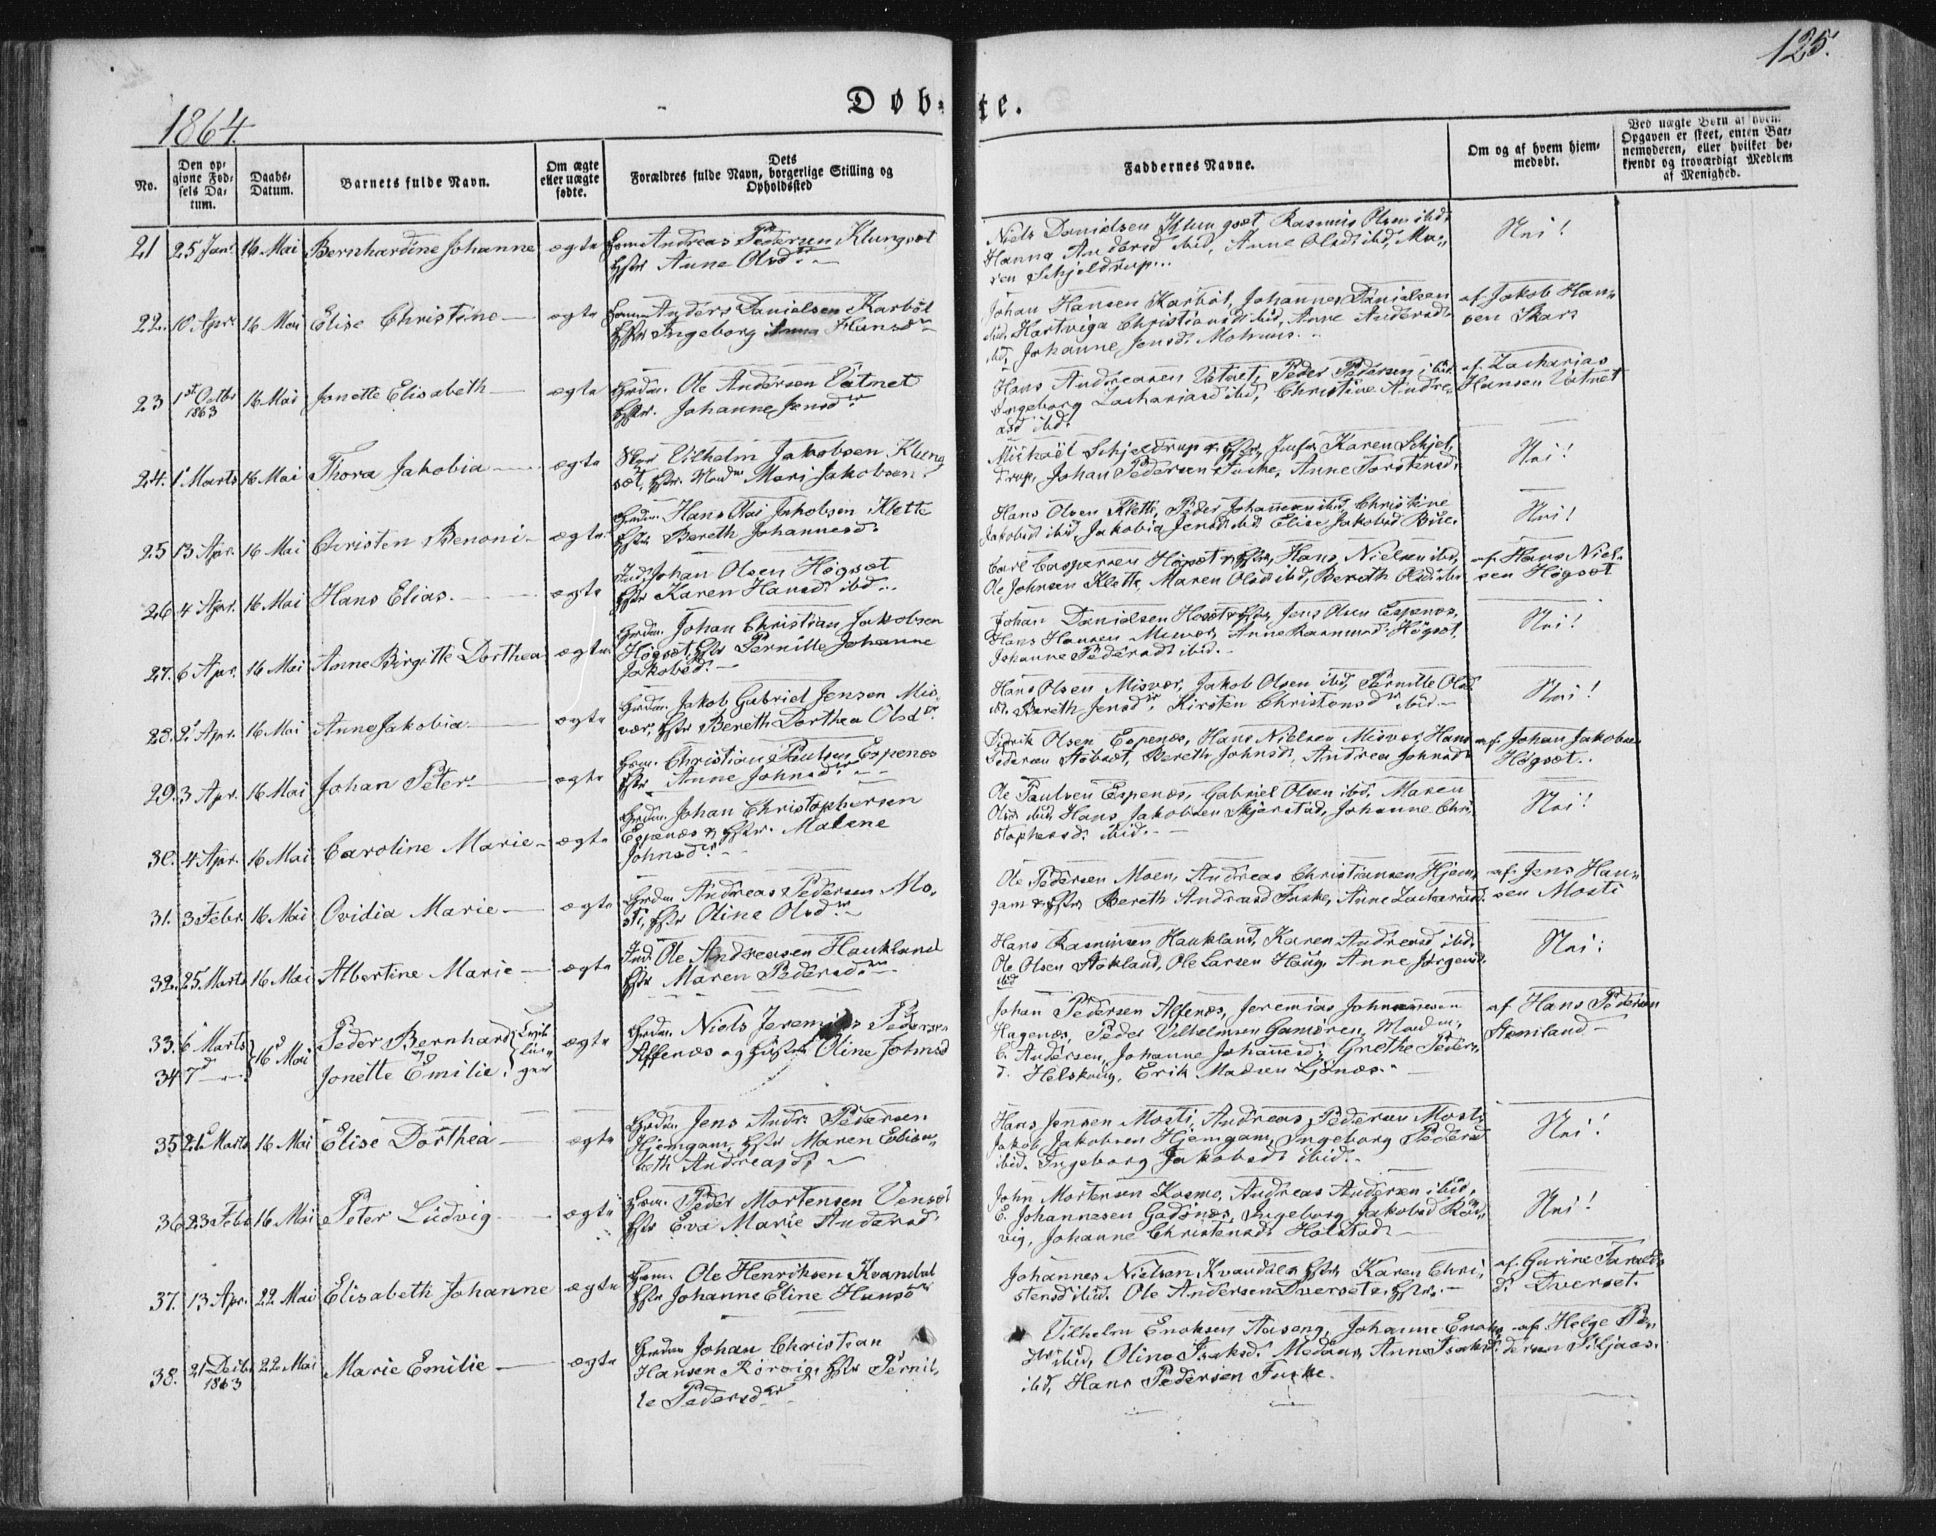 125.
1864.
Døb-te.
No.
Den opgivne Fødsels Datum.
Daabs-Datum.
Barnets fulde Navn.
Om ægte eller uægte fødte.
Dets Forældres fulde Navn, borgerlige Stilling og Opholdssted
Faddernes Navne.
Om og af hvem hjemmedøbt.
Ved uægte Børn af hvem Opgaven er skeet, enten Barnemoderen, eller hvilket bekjendt og troværdigt Medlem af Menighed.
21 25 Jan. 16 Mai Bernhardine Johanne ægte Andreas Pedersen Klungsæt
Anne Olsdr.
Niels Danielsen Klungsæt Rasmus Olsen ibid.
Hanna Andersd ibid, Anne Olsd. ibid, Ma-
ren Schjeldrup.
Nei!
22. 10 Apr. 16 Mai Elise Christine ægte Anders Danielsen Karbøl
Ingeborg Anna Hansdr
Johan Hansen Karbøl, Johannes Danielsen
ibid, Hartviga Christiansd ibid, Anne Andersd.
ibid, Johanne Jensd.
af Jakob Han-
sen Skar
23 1st Octbr 1863 16 Mai Jonette Elisabeth ægte Grdm. Ole Andersen Vatnet
Hstr. Johanne Jensdr
Hans Andreasen Vatnet, Peder Pedersen ibid
Ingeborg Zachariasd ibid, Christine Andre-
asd ibid.
af Zacharias
Hansen Vatnet
24. 1 Marts 16 Mai Thora Jakobia ægte Vilhelm Jakobsen Klung
sæt, Hstr. Mari Jakobsen
Mikael Schjeldrup & Hstr, Jnfr. Karen Schjel-
drup, Johan Pedersen Fuske, Anne Torstensd.
Nei!
25 13 Apr. 16 Mai Christen Benoni ægte Grdm. Hans Olai Jakobsen Klette
Hstr Bereth Johannesd.
Hans Olsen Klette, Peder Johansen ibid, Christine
Jakobsd ibid, Jakobia Jensd ibid Elise Jakobsd Bue.
Nei!
26 4 Apr. 16 Mai Hans Elias. ægte Ind. Johan Olsen Høgsæt
Hstr Karen Hansd ibid
Carl Caspersen Høgsæt & Hstr, Hans Nielsen ibid,
Ole Johnsen Klette, Maren Olsd ibid, Bereth Olsd ibid
af Hans Niel-
sen Høgsæt
27. 6 Apr. 16 Mai Anne Birgitte Dorthea ægte Grdm. Johan Christian Jakobsen
Høgsæt, Hstr Pernille Johanne
Jakobsd.
Johan Danielsen & Hstr, Jens Olsen Espenæs,
Hans Hansen Misvær, Anne Rasmusd. Høgsæt,
Johanne Pedersd. ibid.
Nei!
28. 2 Apr. 16 Mai Anne Jakobia ægte Grdm. Jakob Gabriel Jensen Mis-
vær, Hstr Bereth Dorthea Olsdr.
Hans Olsen Misvær, Jakob Olsen ibid, Pernille Olsd
ibid. Bereth Jensdr, Kirsten Christensdr ibid
Nei!
29. 3 Apr. 16 Mai Johan Peter. ægte Christian Paulsen Espenæs
Hstr. Anne Johnsdr
Olsen Espenæs, Hans Nielsen Misvær, Hans
Pedersen, Bereth Johnsd., Andrea Johnsd
af Johan Jakobsen
Høgsæt.
30. 4 Apr. 16 Mai Caroline Marie ægte Grdm. Johan Christophersen
Espenæs & Hstr. Malene
Johnsdr.
Ole Paulsen Espenæs, Gabriel Olsen ibid. Maren
Olsd. ibid, Hans Jakobsen Skjerstad, Johanne Chri-
stophersd. ibid.
Nei!
31. 3 Febr. 16 Mai Ovidia Marie ægte Grdm Andreas Pedersen Mo-
sti, Hstr Oline Olsdr
Ole Pedersen Moen, Andreas Christiansen Hjem-
gam & Hstr, Bereth Andreasd Fuske, Anne Zachariasd
af Jens Han-
sen Mosti
32. 25 Marts 16 Mai Albertine Marie ægte Ind. Ole Andreasen Haukland
Hstr Maren Pedersd.
Hans Rasmussen Haukland, Karen Andreasd ibid.
Ole Olsen Støkland, Ole Larsen Haug, Anne Jørgensd.
ibid
Nei!
33. 6 Marts 16d Mai Peder Bernhard Tvil-
34 7d og Jonette Emilie. lin-
ger ægte Grdm. Niels Jeremias Pedersen
Alfenæs og Hustru Oline Johnsd
Johan Pedersen Alfenæs, Jeremias Johannesen
Hagenæs, Peder Vilhelmsen, Mad.
Andersen, Johanne Johannesd., Grethe Peder-
d. Helskoug, Erik Madsen
af Hans Pedersen
Stemland
35 21 Marts 16 Mai Elise Dorthea ægte Grdm Jens Andr. Pedersen
Hjemgam, Hstr Maren Elisa-
beth Andreasd.
Hans Jensen Mosti, Andreas Pedersen Mosti,
Jakob Jakobsen Hjemgam, Ingeborg Pedersd
ibid. Ingeborg Jakobsd. ibid.
Nei!
36 23 Febr 16 Mai Peter Ludvig ægte Peder Mortensen Vensæt
Hstr Eva Marie Andersd
John Mortensen Kosmo, Andreas Andersen ibid,
E. Johannesen Godønæs, Ingeborg Jakobsd Rør-
vig, Johanne Christensd. Holstad
Nei!
37. 13 Apr. 22 Mai Elisabeth Johanne ægte Ole Henriksen Kvandal
Hstr Johanne Eline Hansdr
Johannes Nielsen Kvandal & Hstr, Karen Chri-
stensd ibid. Ole Andersen Dverset & Hstr.
af Gurine Taralds-
d. Dverset.
38. 21 Decbr 1863 22 Mai Marie Emilie ægte Grdm Johan Christian
Hansen Rørvig, Hstr Pernil-
le Pedersdr
Vilhelm Enoksen Aaseng, Johanne Enoks-
dtr ibid, Olina Isaksd. Medaas, Anne Isaksd.
ibid, Hans Pedersen Fuske.
af Helge Pe-
dersen Siljaas.